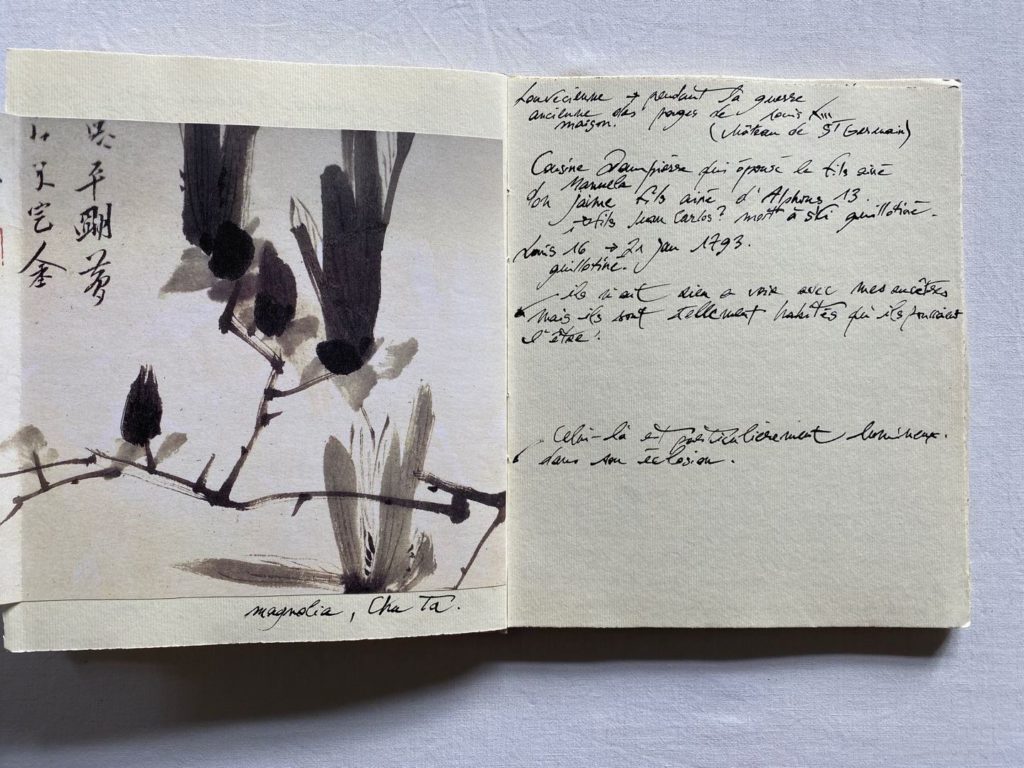 平剛
magnolia, Chu Ta.
Louvecienne → pendant la guerre
ancienne des pages de Louis XIII
maison. (château de St Germain)
Cousine Dampierre qui épouse le fils ainé
Manuela
Don Jaime fils ainé d'Alphons 13.
→ fils Juan Carlos? mort à ski guillotiné.
Louis 16 → 21 Jan 1793.
guillotiné.
ils n'ont rien a voir avec mes ancêtres
mais ils sont tellement habités qu'ils pourraient
l'être!
Celui-là est particulièrement lumineux.
dans son éclosion.